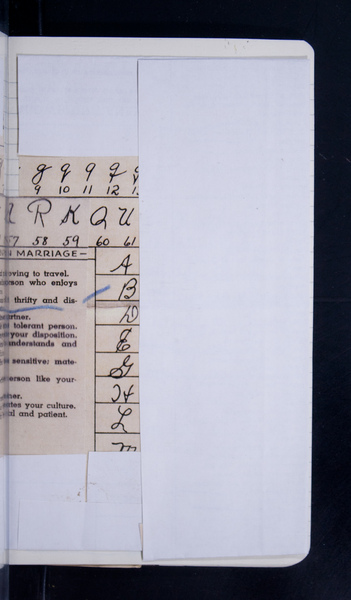 g q q q
9 10 11 12
R K Q U
57 58 59 60 61
N MARRIAGE—
oving to travel.
erson who enjoys
thrifty and dis-
artner.
tolerant person.
your disposition.
understands and
sensitive; mate-
person like your-
ates your culture.
al and patient.
A
B
D
E
G
H
L
m